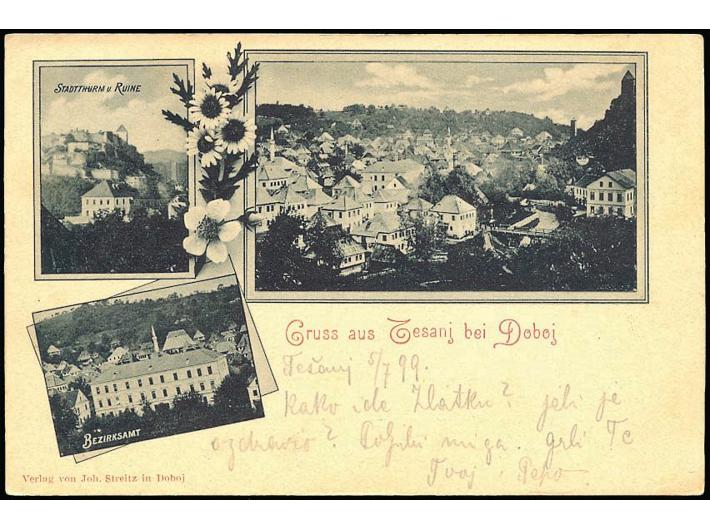 STADTTHURM U RUINE
Gruss aus Tesanj bei Doboj
Tešanj 5/7 99.
Kako ide Zlatku? jeli je
ozdravio? Pošalji mi ga. grli Te
Tvoj Pepo
BEZIRKSAMT
Verlag von Joh. Streitz in Doboj